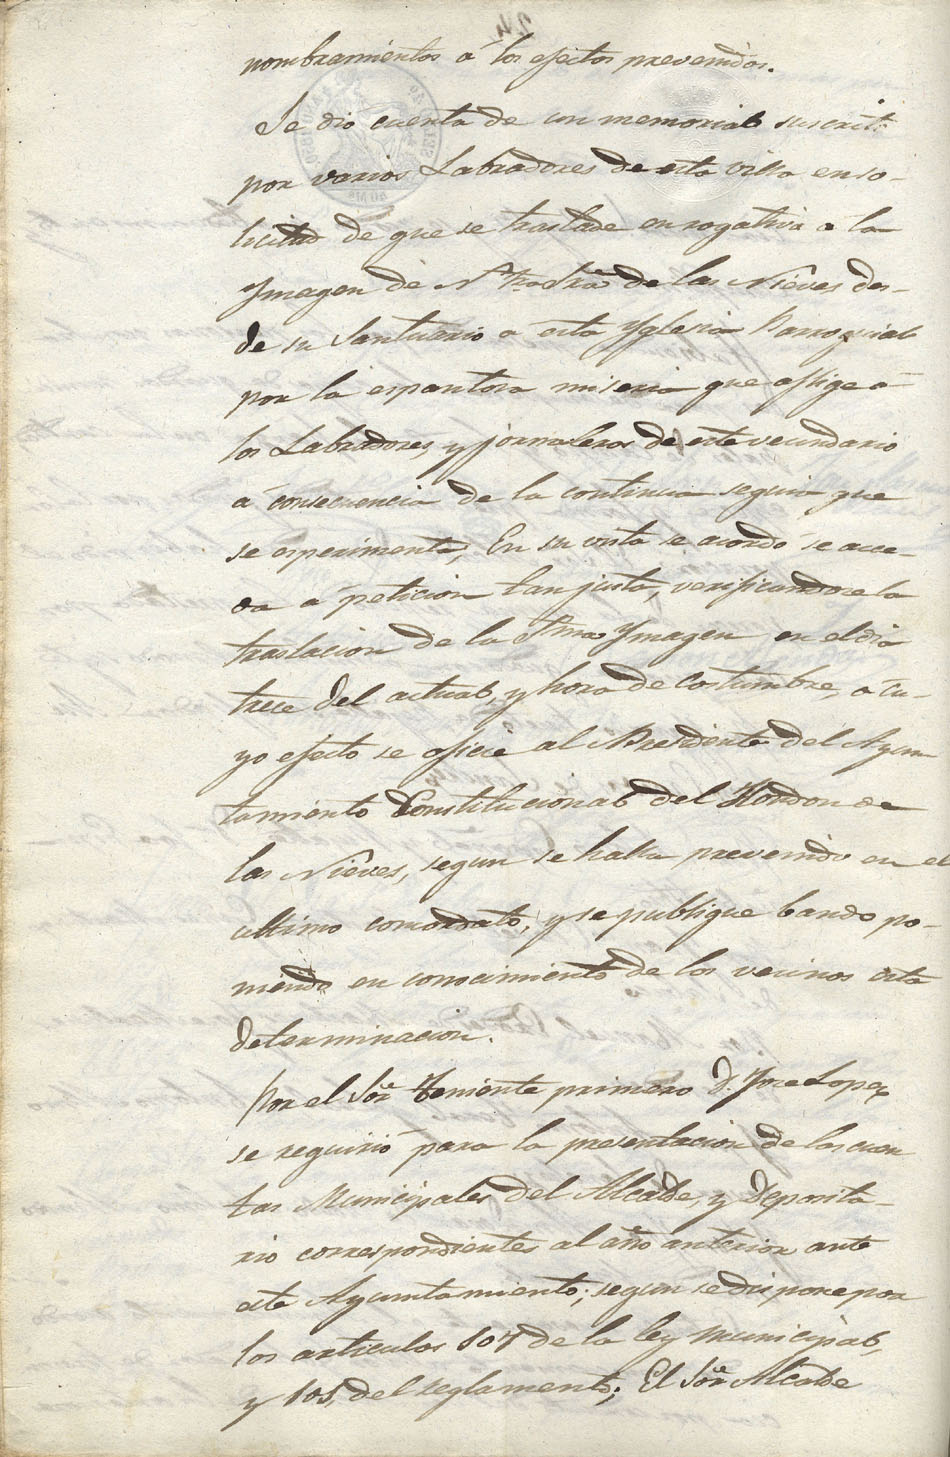 nombramientos á los efectos prevenidos.
Se dio cuenta de un memorial suscrito
por varios Labradores de esta villa en so-
licitud de que se traslade en rogativa a la
Ymagen de Ntra Sra de las Nieves des-
de su Santuario a esta Yglesia Parroquial
por la espantosa miseria que aflige a
los Labradores y jornaleros de este vecindario
a consecuencia de la continua sequia que
se esperimenta; En su vista se acordó se acce-
da a peticion tan justa, verificandose la
traslacion de la Stma Ymagen en el dia
trece del actual, y hora de costumbre, a cu-
yo efecto se oficie al Presidente del Ayun
tamiento Constitucional del Hondon de
las Nieves, segun se halla prevenido en el
ultimo concordato, y se publique bando po-
niendo en conocimiento de los vecinos esta
determinacion.
Por el Sor Teniente primero D. Jose Lopez
se requirió para la presentacion de las cuen
tas Municipales del Alcalde, y Deposita-
rio correspondientes al año anterior ante
este Ayuntamiento; segun se dispone por
los articulos 107 de la ley Municipal,
y 105 del reglamento; El Sor Alcalde